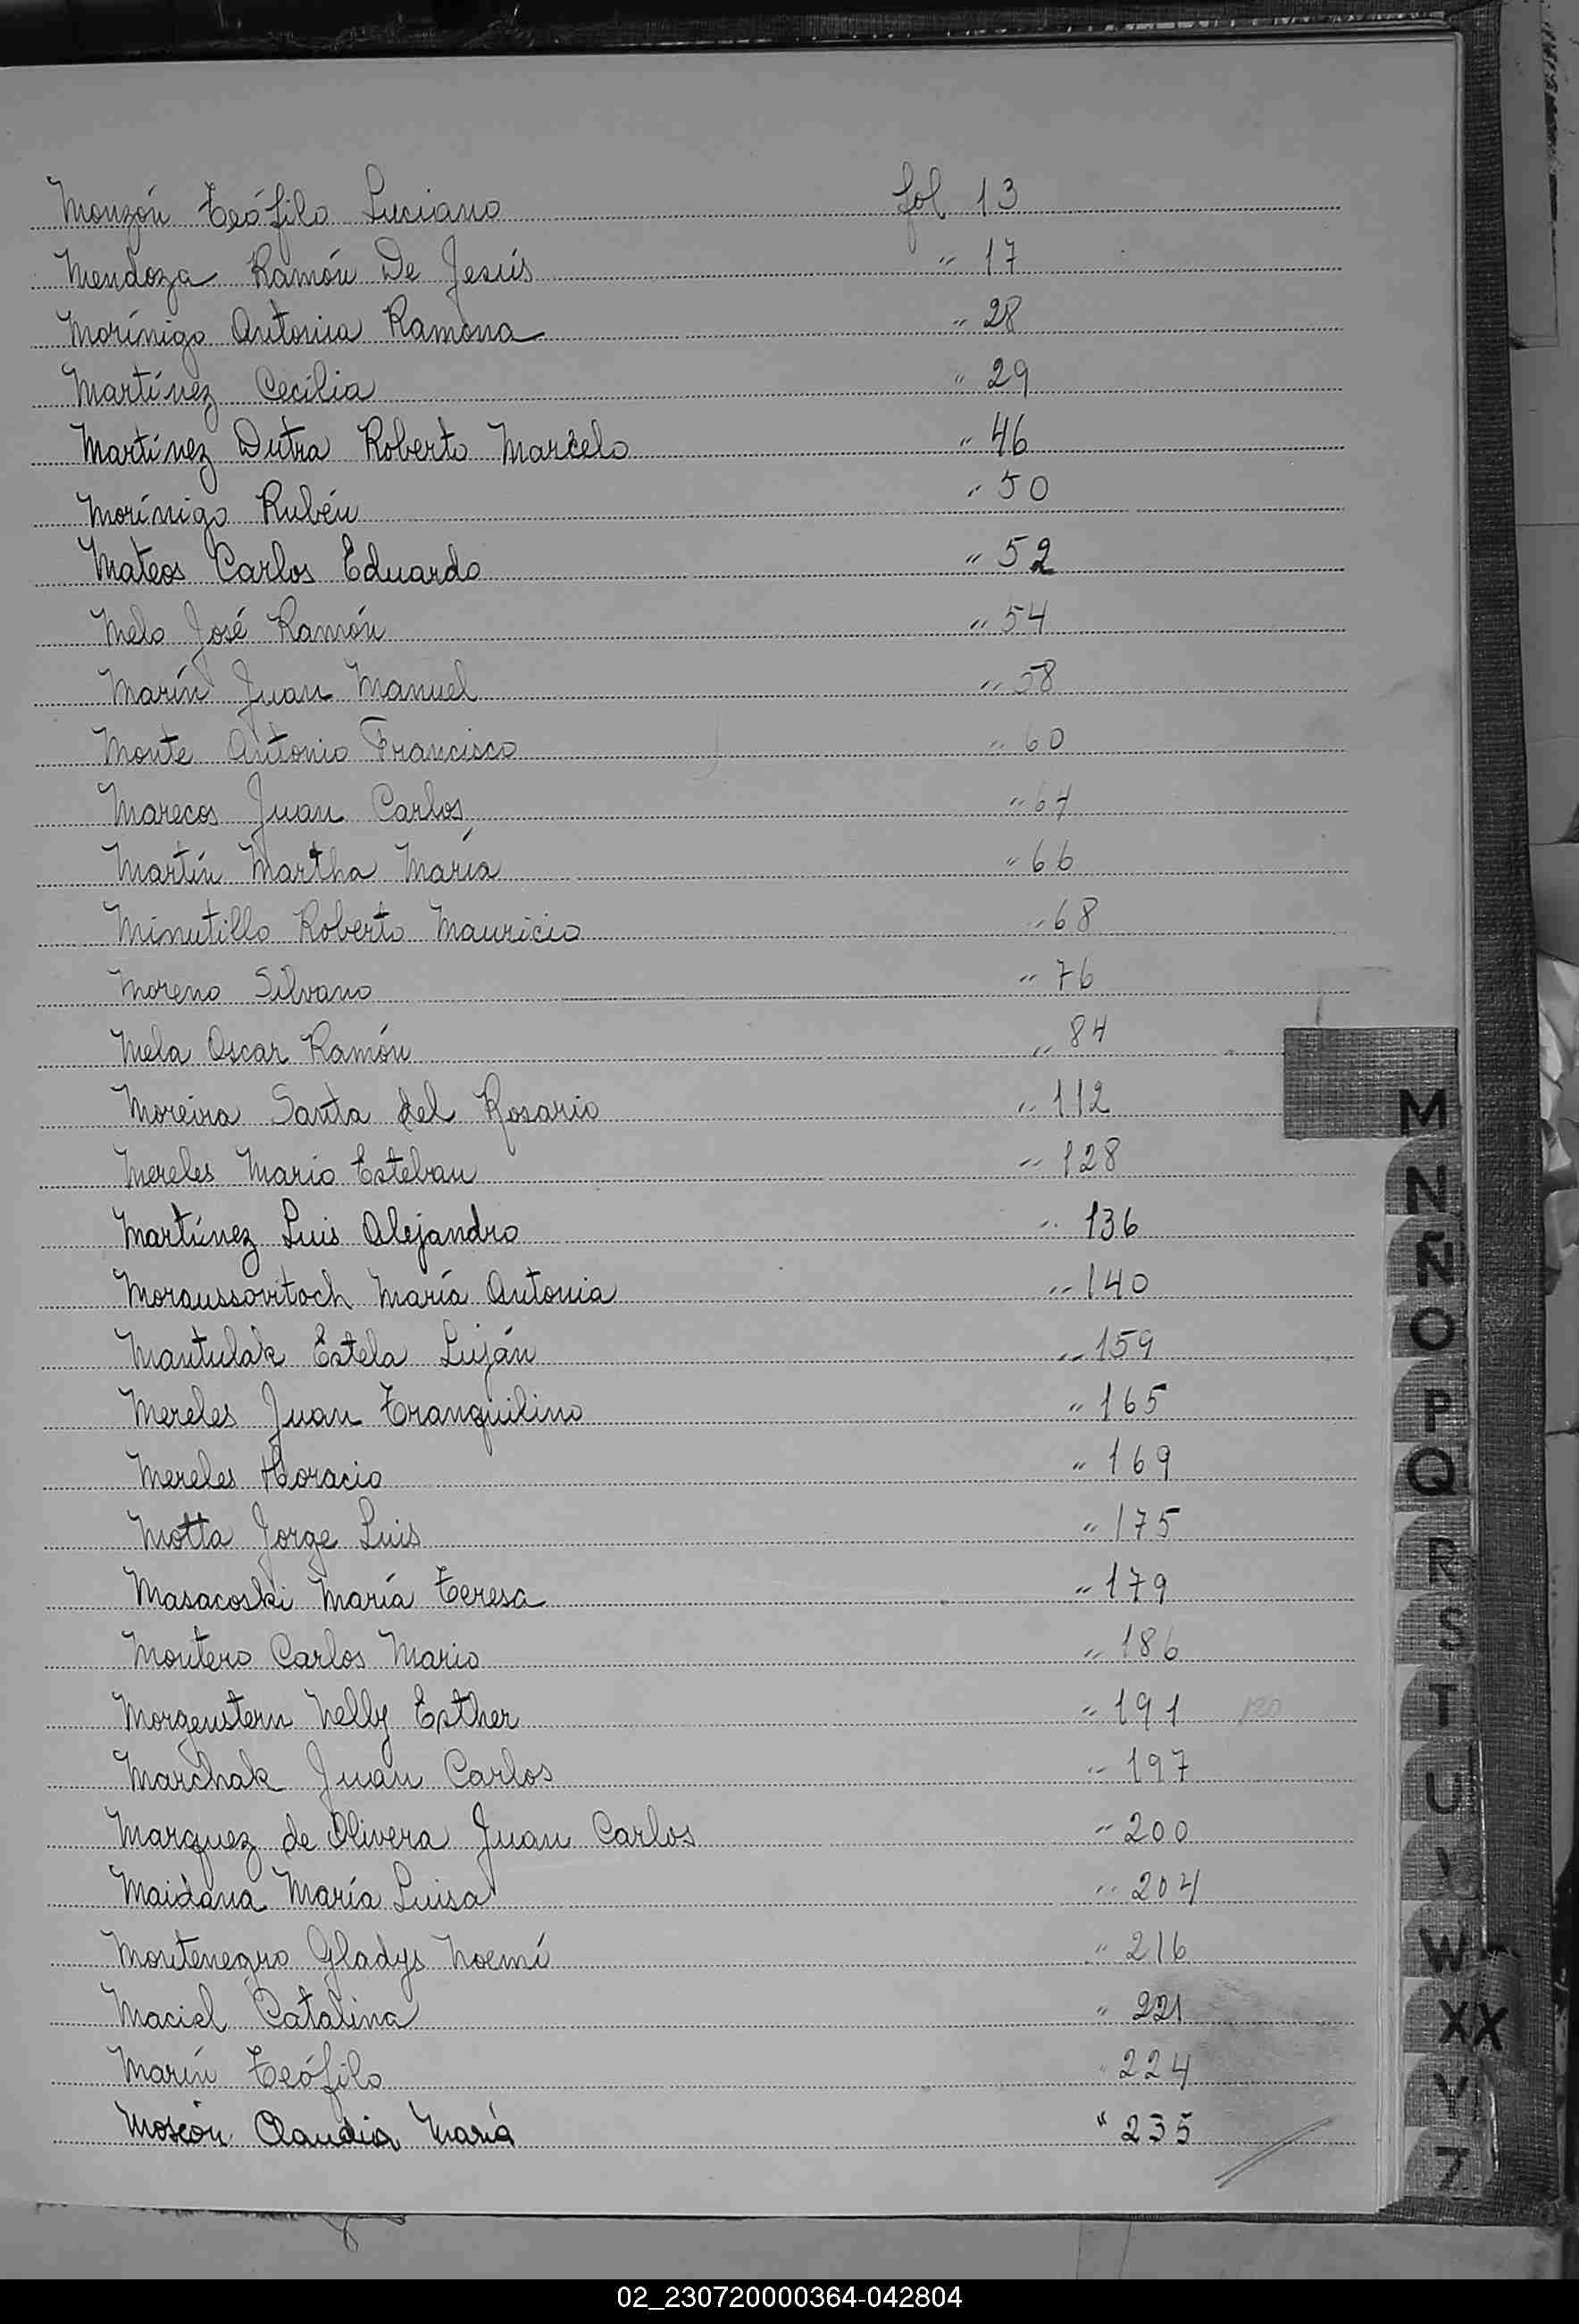 Monzón Teófilo Luciano fol 13
Mendoza Ramón De Jesús " 17
Morínigo Antonia Ramona " 28
Martínez Cecilia " 29
Martínez Dutra Roberto Marcelo " 46
Morínigo Rubén " 50
Mateos Carlos Eduardo " 52
Melo José Ramón " 54
Marín Juan Manuel " 58
Monte Antonio Francisco " 60
Marecos Juan Carlos " 64
Martín Martha María " 66
Minutillo Roberto Mauricio " 68
Moreno Silvano " 76
Mela Oscar Ramón " 84
Moreira Santa del Rosario " 112
Mereles Mario Esteban " 128
Martínez Luis Alejandro " 136
Moraussovitoch María Antonia " 140
Mantulak Estela Luján " 159
Mereles Juan Tranquilino " 165
Mereles Horacio " 169
Motta Jorge Luis " 175
Masacoski María Teresa " 179
Montero Carlos Mario " 186
Morgenstern Nelly Esther " 191
Marchak Juan Carlos " 197
Marquez de Olivera Juan Carlos " 200
Maidana María Luisa " 204
Montenegro Gladys Noemí " 216
Maciel Catalina " 221
Marín Teófilo " 224
Moscón Claudia María " 235
M
N
Ñ
O
P
Q
R
S
T
U
W
XX
Y
Z
02_230720000364-042804